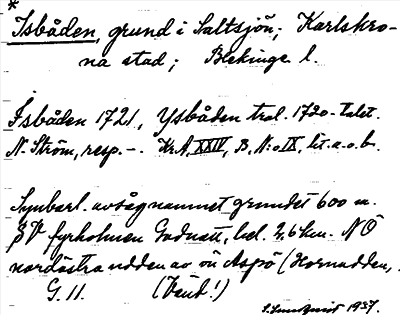 *
Isbåden, grund i Saltsjön; Karlskro-
na stad; Blekinge l.
Isbåden 1721, Ysbåden trol. 1720-talet.
N. Ström, resp. -. Kr. A. XXIV, B. N:o IX, lit. a. o. b.
Synbarl. avsåg namnet grundet 600 m.
på V fyrholmen Godnatt, bel. 2,6 km. NÖ
nordöstra udden av ön Aspö (Hornudden,
G. 11. (Vänt!)
S. Sundquist 1937.